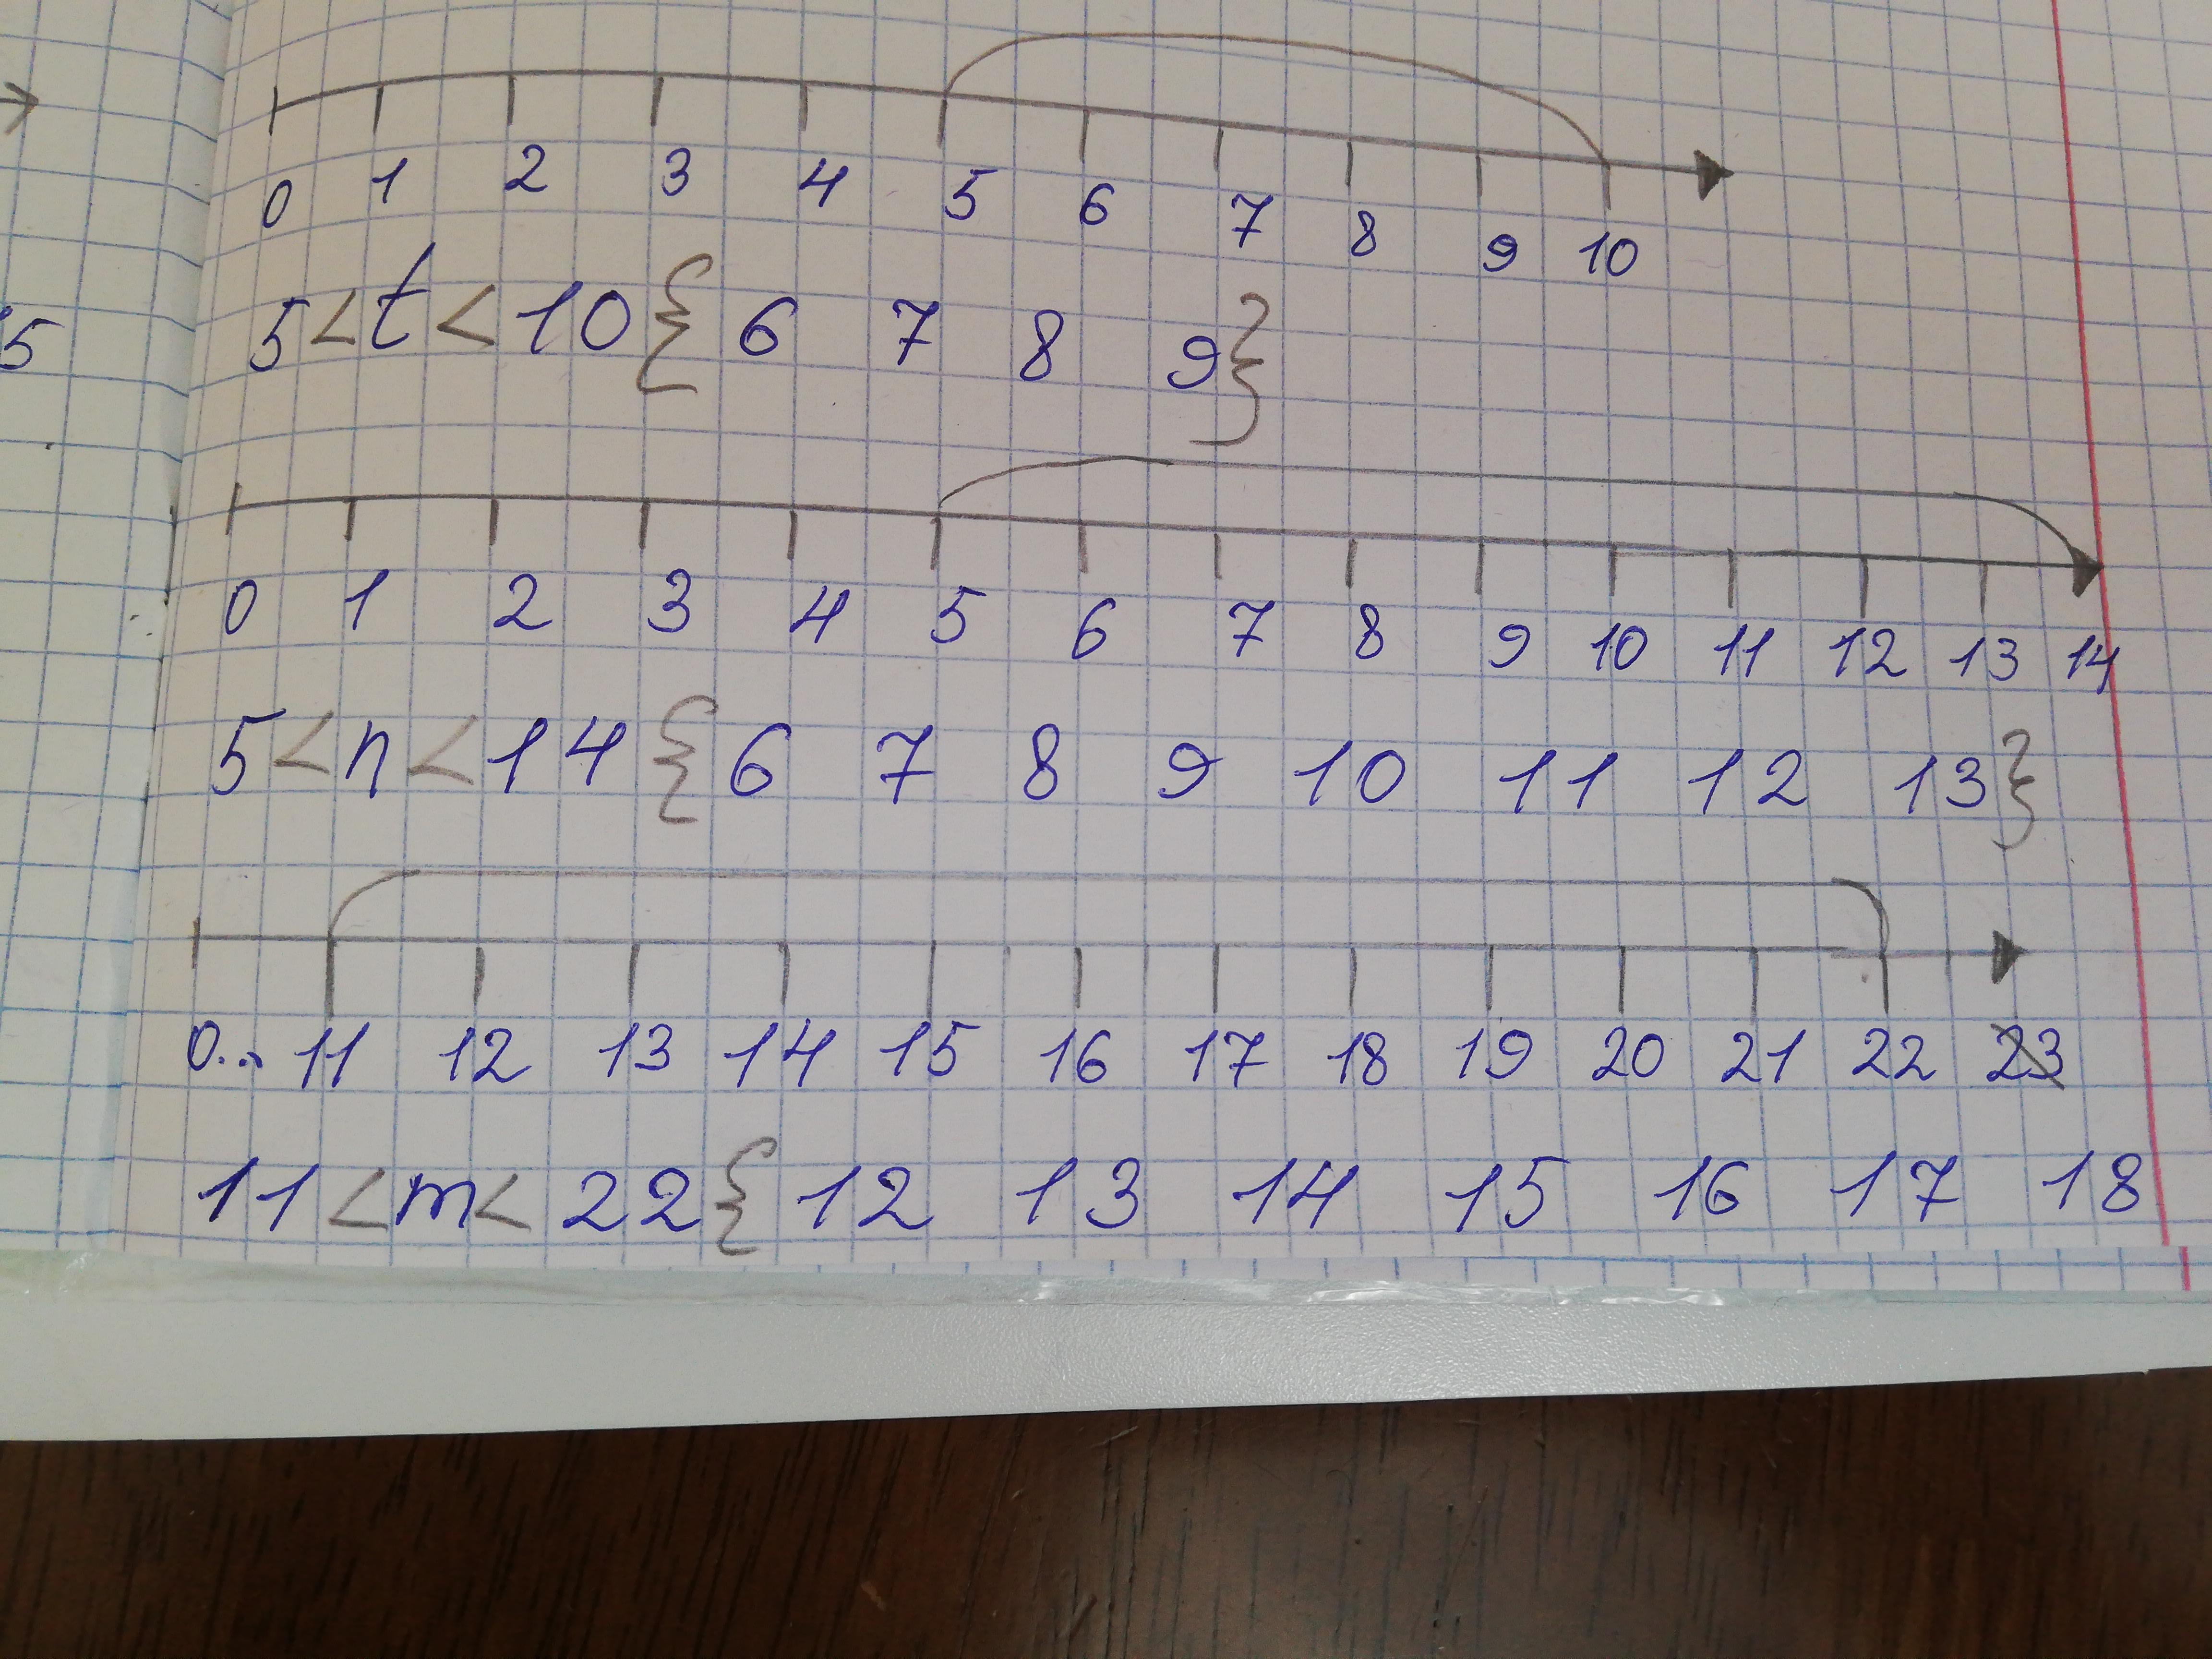 0 1 2 3 4 5 6 7 8 9 10
5 < t < 10 { 6 7 8 9 }
5
0 1 2 3 4 5 6 7 8 9 10 11 12 13 14
5 < n < 14 { 6 7 8 9 10 11 12 13 }
0.. 11 12 13 14 15 16 17 18 19 20 21 22 23
11 < m < 22 { 12 13 14 15 16 17 18